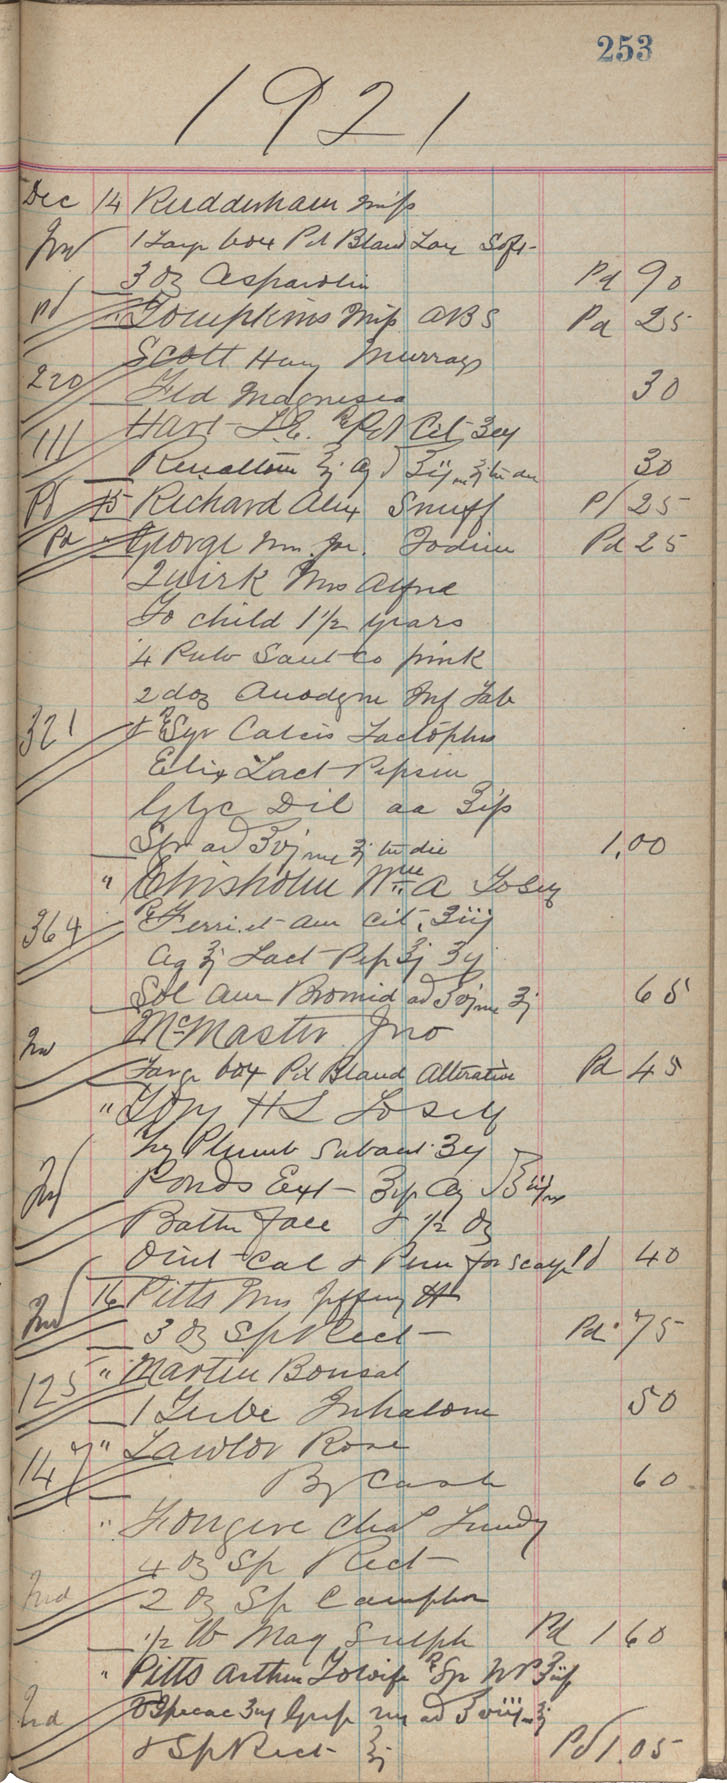 253
1921
Dec 14 Rudderham Miss
Ind 1 Large box Pil Blaud Lax Soft
3 oz Pd 90
Pd " Tompkins Miss ABS Pd 25
220 Scott Hary Murray
Fld Magnesia 30
111 Hart L.E. ℞ Pot Cit ʒ
ʒj Aq ad ℥ 30
Pd 15 Richard Alex Snuff Pd 25
Pd " George Wm. Jr. Iodine Pd 25
Quirk Mrs Alfred
To child 1 1/2 years
4 Pulv Sant Co pink
2 doz Anodyne Inf Tab
321 & ℞ Syr Calcis Lactophos
Elix Lact Pepsin
Glyc Dil aa ℥ip
ad ℥vj ʒj 1.00
" Chisholm Wm A Toself
364 ℞ Ferri et Am Cit. ʒiij
Aq ℥j Lact Pep
Sol Am Bromid ad ℥vj ʒj 65
Ind McMaster Jno
Large box Pil Blaud Alterative Pd 45
" H L To Self
Plumb Subact ʒij
Ind Ponds Ext Aq
Bathe face & 1/2 oz
Oint Cal & for scalp Pd 40
Ind 16 Pitts Mrs Jeffrey H
3 oz Sp Rect Pd 75
125 " Martin Bonsal
1 Tube Inhalone 50
147 " Lawlor Rose
By Cash 60
" Fougere Chas
4 oz Sp Rect
Ind 2 oz Sp Camphor
1/2 lb Mag Sulph Pd 1 60
" Pitts Arthur To wife ℞ Sp
Ind Ipecac ad ℥viij
& Sp Rect ℥j Pd 1.05